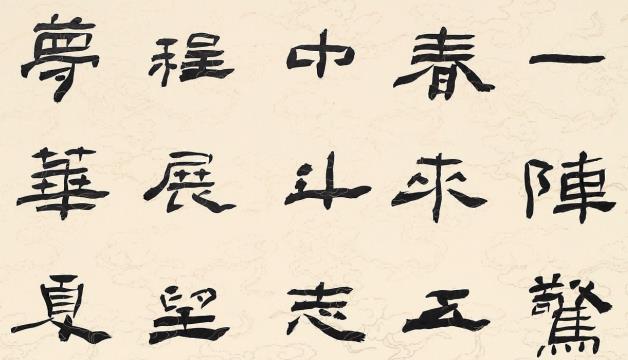 一陣驚
春來
中斗志
程展望
夢華夏